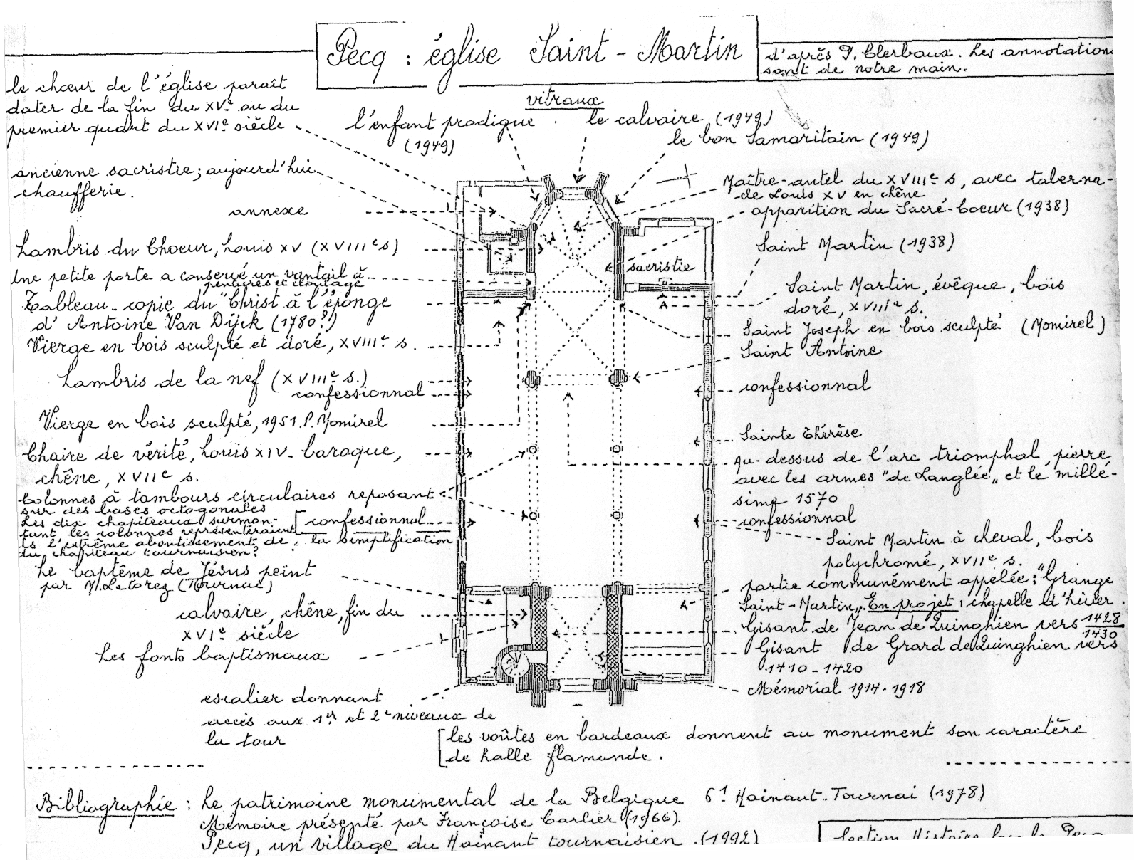 Pecq : église Saint-Martin
d'après P. Clerbaux. Les annotations
sont de notre main.
le chœur de l'église paraît
dater de la fin du XVe ou du
premier quart du XVIe siècle
vitraux
l'enfant prodigue
(1949)
le calvaire (1949)
le bon Samaritain (1949)
ancienne sacristie; aujourd'hui
chaufferie.
annexe
Lambris du Chœur, Louis XV (XVIIIe s)
Une petite porte a conservé un vantail à
peintures et clouage
Tableau-copie du Christ à l'éponge
d'Antoine Van Dijck (1780?)
Vierge en bois sculpté et doré, XVIIIe s.
Lambris de la nef (XVIIIe s.)
confessionnal
Vierge en bois sculpté, 1951. P. Nomirel
Chaire de vérité, Louis XIV-baroque,
chêne, XVIIe s.
Colonnes à tambours circulaires reposant
sur des bases octogonales
Les dix chapiteaux surmon-
tant les colonnes représenteraient
confessionnal
ils l'extrême aboutissement de, la simplification
du chapiteau tournaisien?
Le baptême de Jésus peint
par M. Letorez (Tournai)
calvaire, chêne, fin du
XVIe siècle
Les fonts baptismaux
escalier donnant
accès aux 1er et 2e niveaux de
la tour
Maître-autel du XVIIIe s, avec taberna-
cle Louis XV en chêne
apparition du Sacré-Coeur (1938)
Saint Martin (1938)
sacristie
Saint Martin, évêque, bois
doré, XVIIIe s.
Saint Joseph en bois sculpté (Nomirel)
Saint Antoine
confessionnal
Sainte Thérèse
au-dessus de l'arc triomphal pierre
avec les armes "de Langlée" et le millé-
sime 1570
confessionnal
Saint Martin à cheval, bois
polychromé, XVIIe s.
partie communément appelée: "Grange
Saint-Martin". En projet: chapelle d'hiver.
Gisant de Jean de Quinghien vers 1428
1430
Gisant de Grard de Quinghien vers
1410-1420
Mémorial 1914-1918
les voûtes en bardeaux donnent au monument son caractère
de halle flamande.
Bibliographie : Le patrimoine monumental de la Belgique 6¹ Hainaut-Tournai (1978)
Mémoire présenté par Françoise Carlier (1966)
Pecq, un village du Hainaut tournaisien. (1992)
Section Histoire